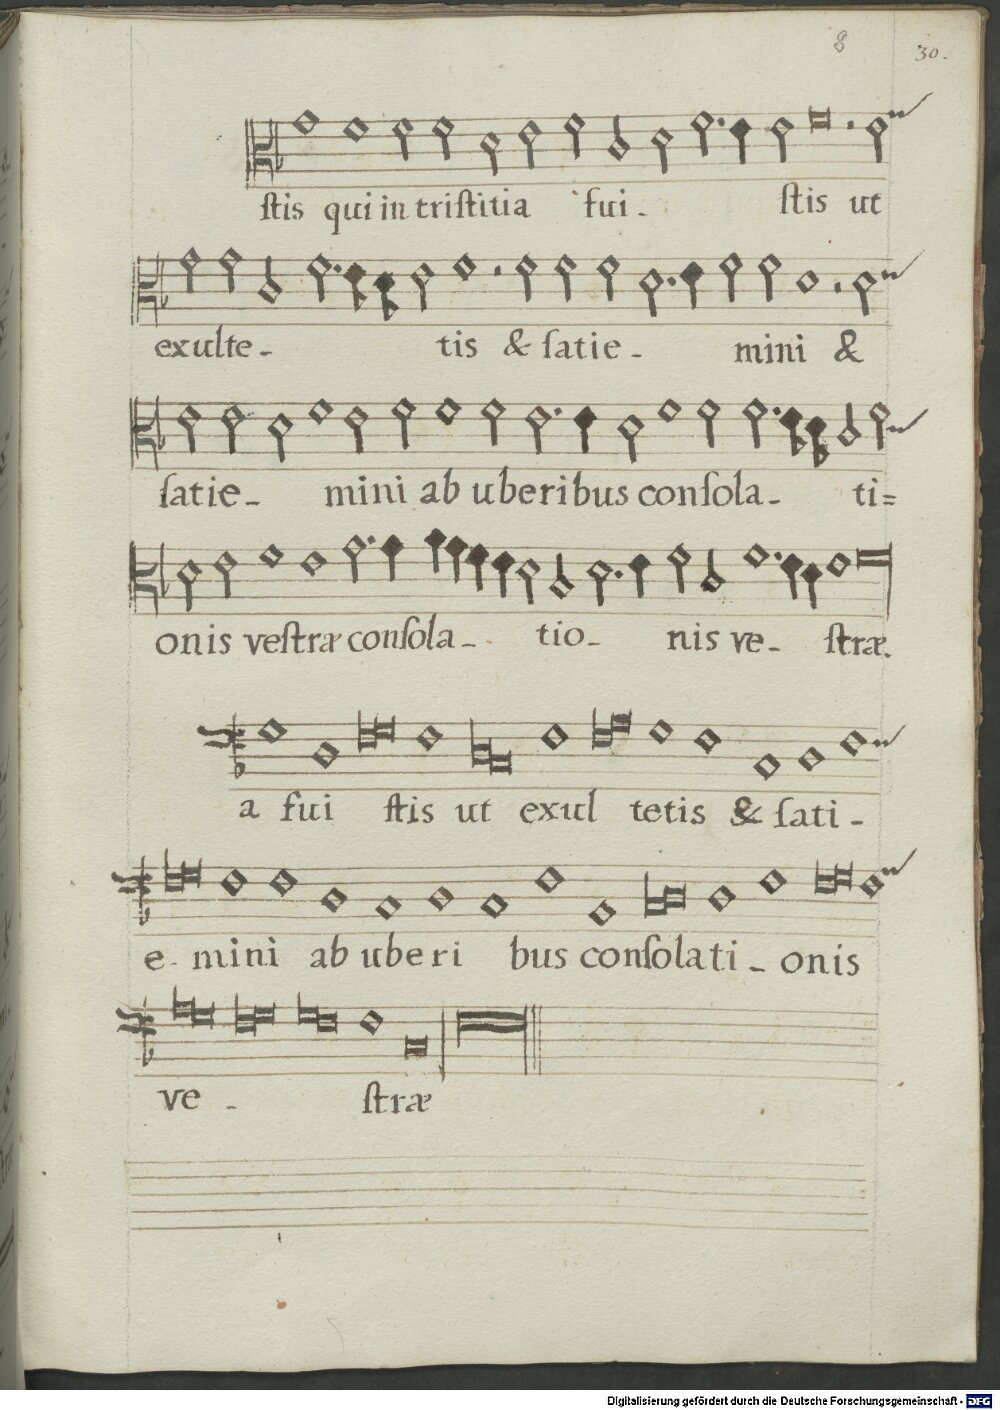 8 30.
ſtis qui in triſtitia fui - ſtis ut
exulte - tis & ſatie - mini &
ſatie - mini ab uberibus conſola - ti=
onis veſtræ conſola - tio - nis ve - ſtræ.
a fui ſtis ut exul tetis & ſati -
e - mini ab uberi bus conſolati - onis
ve - ſtræ
Digitalisierung gefördert durch die Deutsche Forschungsgemeinschaft - DFG